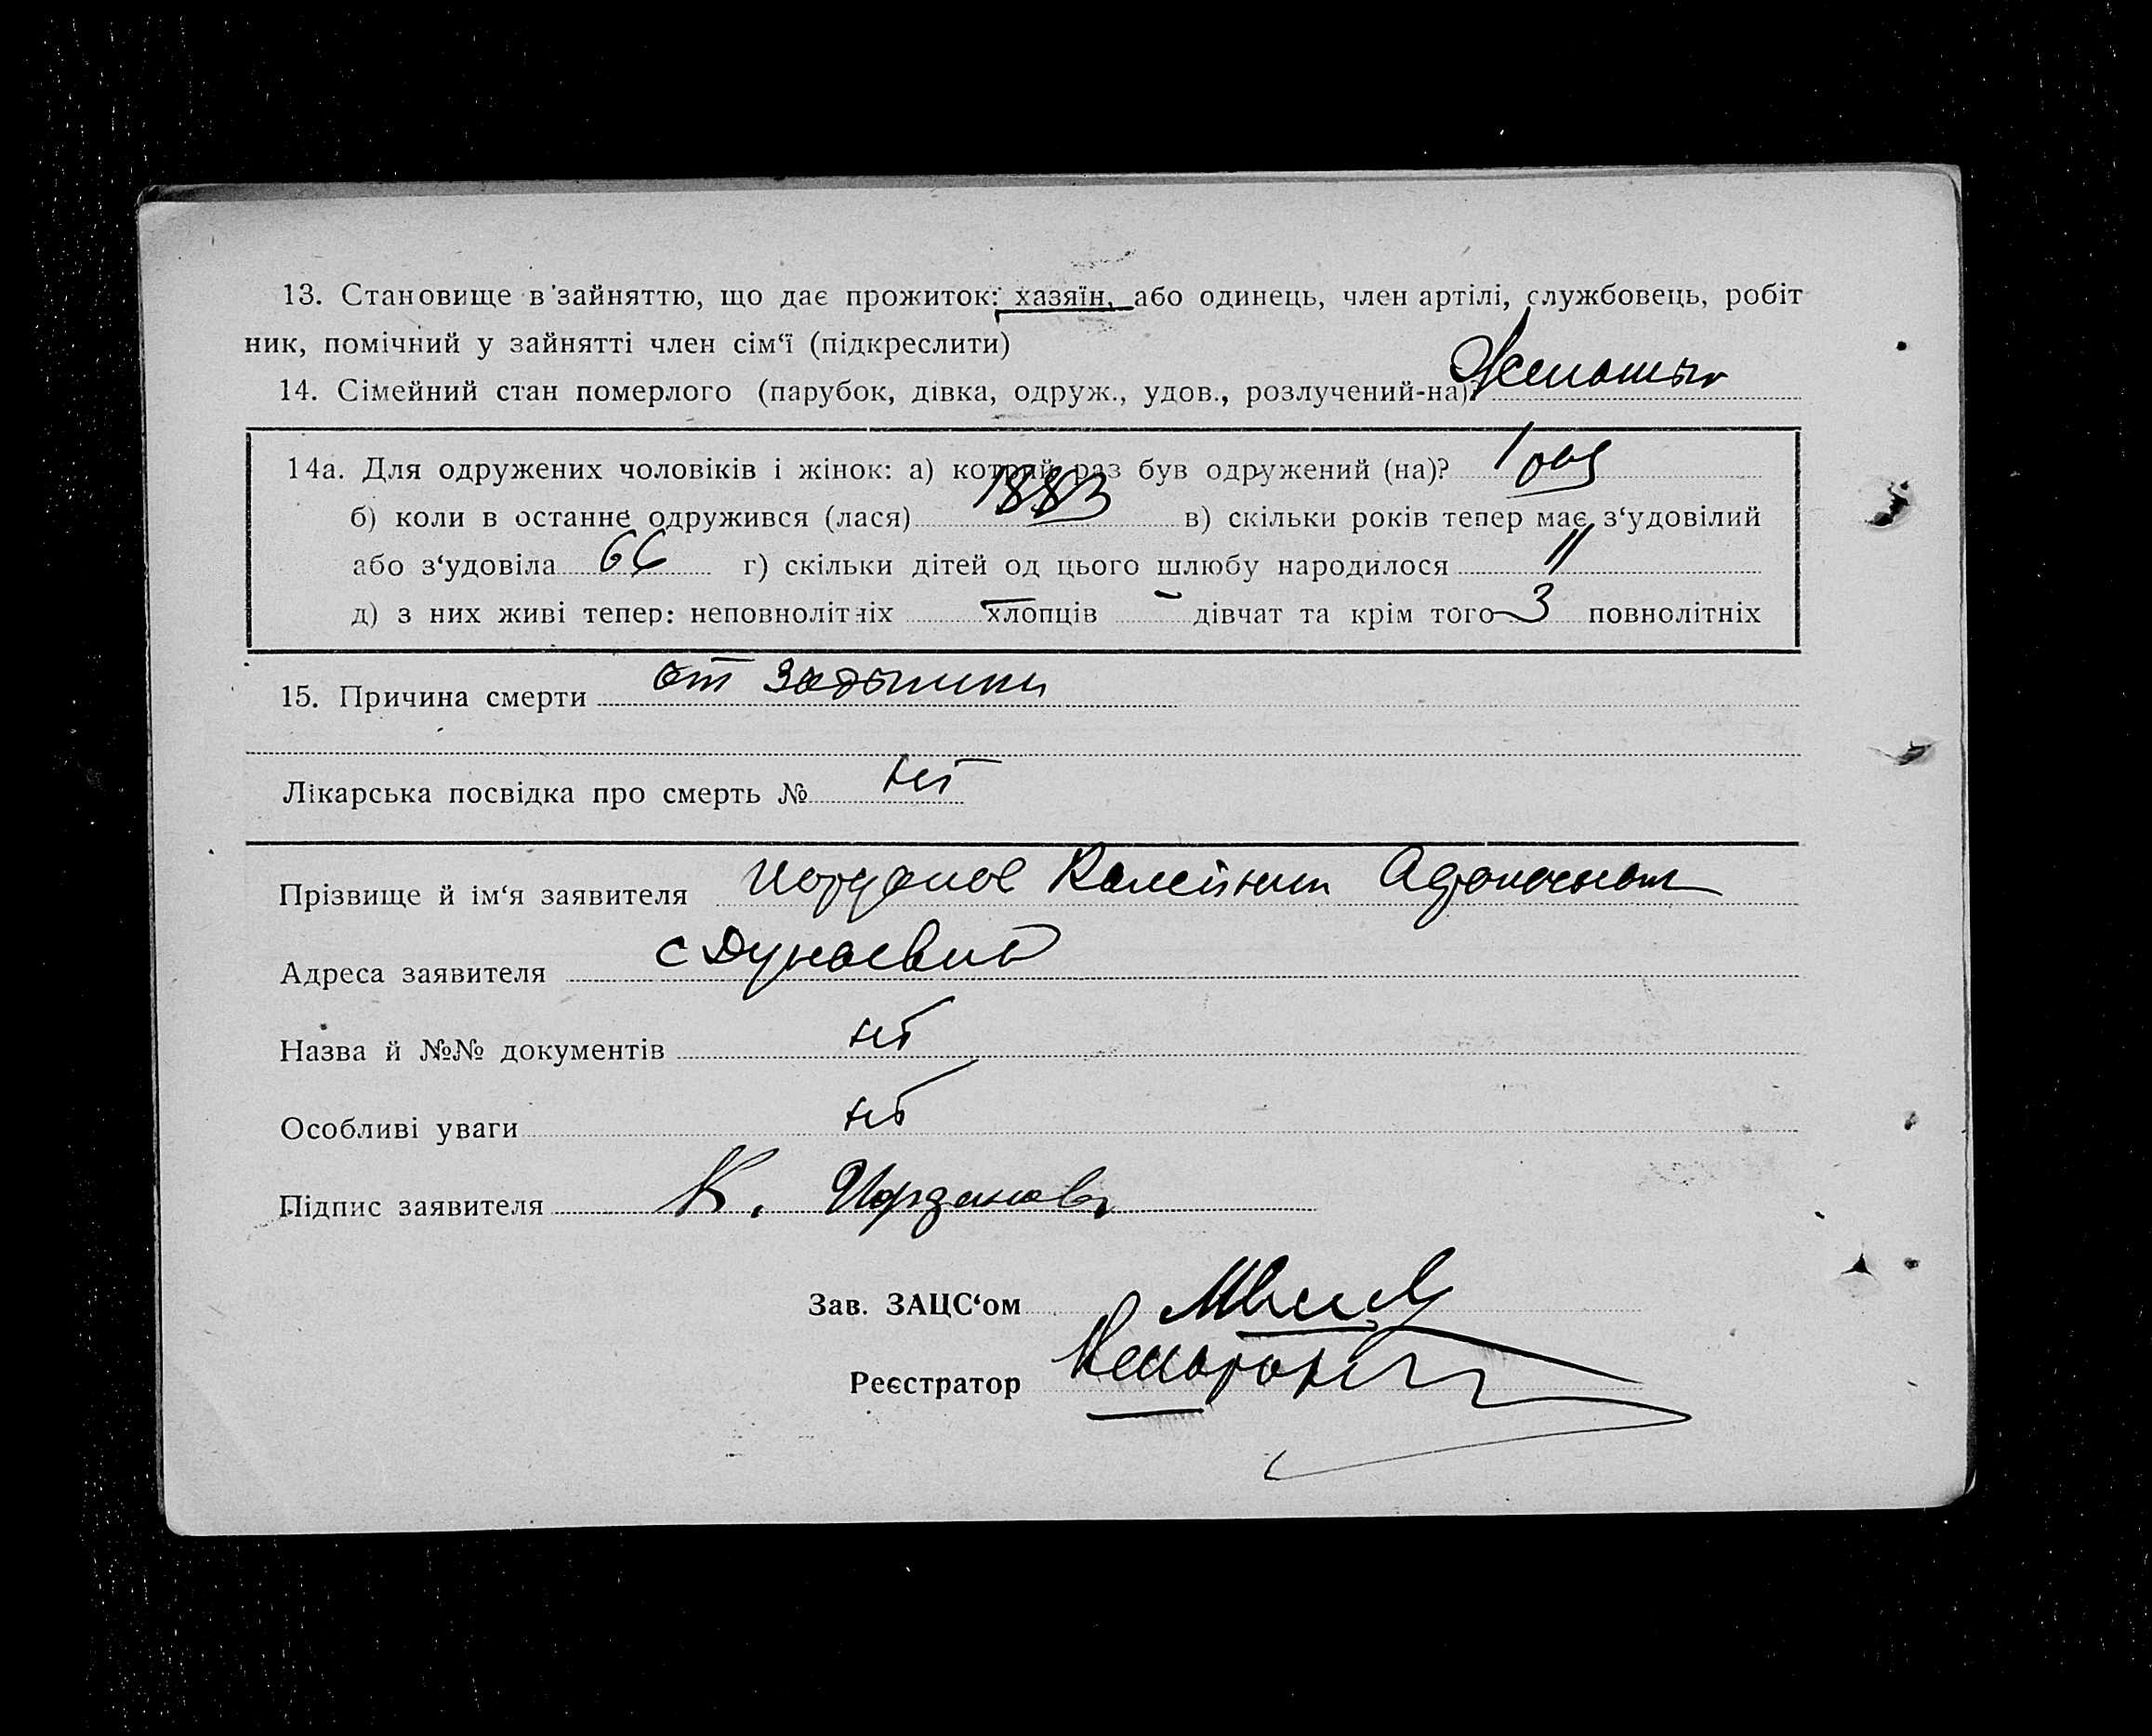 13. Становище в зайняттю, що дає прожиток: хазяїн, або одинець, член артілі, службовець, робіт
ник, помічний у зайнятті член сім‘ї (підкреслити)
14. Сімейний стан померлого (парубок, дівка, одруж., удов., розлучений-на)?
14а. Для одружених чоловіків і жінок: а) котрий раз був одружений (на)? 1 раз
б) коли в останнє одружився (лася) 1883 в) скільки років тепер має з‘удовілий
або з‘удовіла 66 г) скільки дітей од цього шлюбу народилося 11
д) з них живі тепер: неповнолітніх — хлопців — дівчат та крім того 3 повнолітніх
15. Причина смерти от задышки
Лікарська посвідка про смерть № нет
Прізвище й ім‘я заявителя Иорданов
Адреса заявителя с
Назва й №№ документів нет
Особливі уваги нет
Підпис заявителя К. Иорданов
Зав. ЗАЦС‘ом
Реєстратор